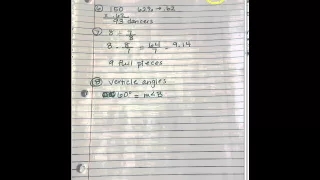 ⑥ 150 62% → .62
x .62
93 dancers
⑦ 8 ÷ 7/8
8 · 8/7 = 64/7 = 9.14
9 full pieces
⑧ verticle angles
60° = m∠B